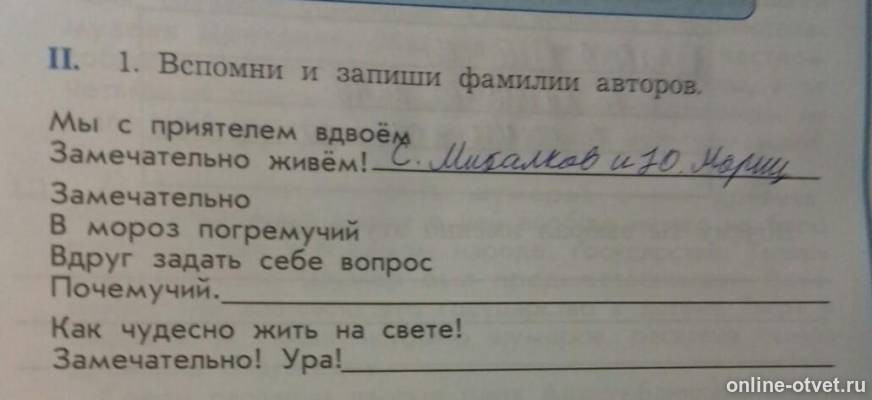 II. 1. Вспомни и запиши фамилии авторов.
Мы с приятелем вдвоём
Замечательно живём! С. Михалков и Ю. Мориц
Замечательно
В мороз погремучий
Вдруг задать себе вопрос
Почемучий.
Как чудесно жить на свете!
Замечательно! Ура!
online-otvet.ru